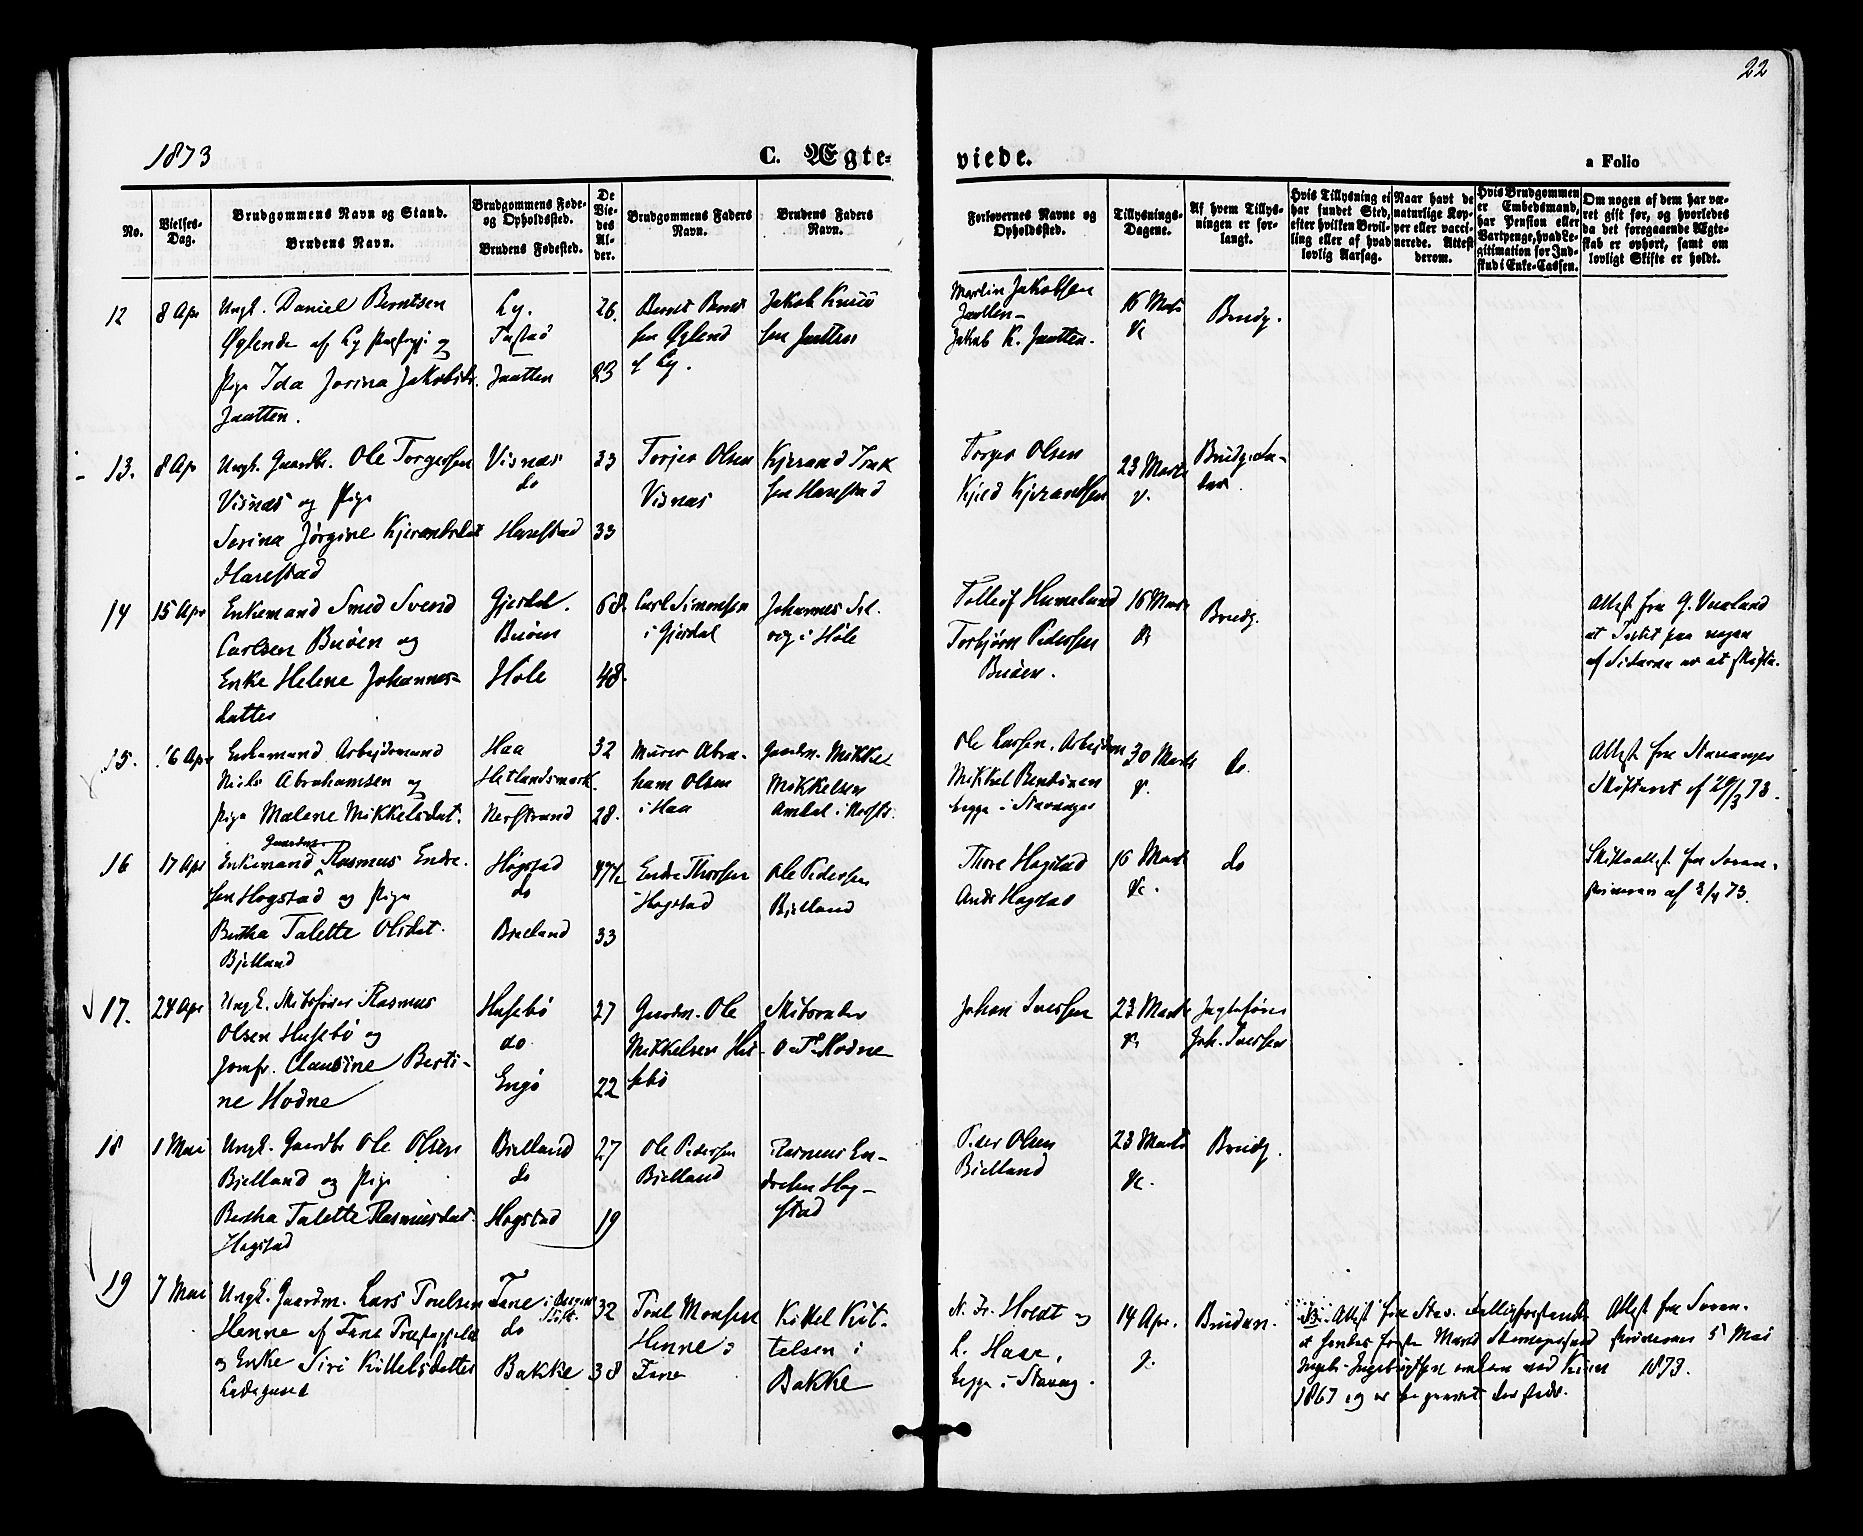 22
1873
C. Ægte-
viede.
a Folio
No.
Vielses-
Dag.
Brudgommens Navn og Stand.
Brudens Navn.
Brudgommens Føde-
og Opholdssted.
Brudens Fødested.
De
Vie-
des
Al-
der.
Brudgommens Faders
Navn.
Brudens Faders
Navn.
Forlovernes Navne og
Opholdssted.
Tillysnings-
Dagene.
Af hvem Tillys-
ningen er for-
langt.
Hvis Tillysning ei
har fundet Sted,
efter hvilken Bevil-
ling eller af hvad
lovlig Aarsag.
Naar havt de
naturlige Kop-
per eller vacci-
nerede. Attest
derom.
Hvis Brudgommen
er Embedsmand,
har Pension eller
Vartpenge, hvad Le-
gitimation for Ind-
skud i Enke-Cassen.
Om nogen af dem har væ-
ret gift før, og hvorledes
da det foregaaende Ægte-
skab er ophørt, samt om
lovligt Skifte er holdt.
12
8 Apr
Ungk. Daniel Berntsen
Øglende af Ly og
Pige Ida Jorina Jakobsd.
Jaatten.
Ly.
Tastad
Jaatten
26.
23
Bernt Bernt
sen Øglend
i Ly.
Jakob Knud
sen Jaatten
Martin Jakobsen
Jaatten
Jakob K. Jaatten.
16 Marts
Brudg.
13.
8 Ap
Ungk. Gaardbr. Ole Torgersen
Visnæs og Pige
Serina Jørgine Kjerandsdat
Harestad
Visnæs
do
Harestad
33
33
Torjer Olsen
Visnæs
Kjerand
sen Harestad
Torger Olsen
Kjeld Kjerandsen
23 Marts
14
15 Apr
Enkemand Smed Svend
Carlsen Buøen og
Enke Helene Johannes-
datter
Gjesdal.
Buøen
Høle
68.
48.
Carl Simonsen
i Gjesdal
Johannes Sel
vig i Høle
Tollef Humeland
Torbjørn Pedersen
Buøen.
16 Marts
Brudg.
Attest fra G.
at Intet paa nogen
af Siderne er at skifte.
15.
16 Apr
Enkemand Arbeidsmand
Niels Abrahamsen og
Pige Malene Mikkelsdat.
Haa
Hetlandsmark
Nerstrand
32
28.
Murer Abra-
ham Olsen
i Haa
Gaardm. Mikkel
Mikkelsen
Amdal i Nerst.
Ole Larsen. Arbeidsm
Mikkel
begge i Stavanger
30 Marts
do.
Attest fra Stavanger
Skifteret af 29/3 73.
16
17 Apr
Gaardm.
Enkemand Rasmus Endre
sen Hogstad og Pige
Bertha Talette Olsdat.
Bjelland
Hogstad
do
Bjelland
47½
33
Endre Thorsen
Hogstad
Ole Pedersen
Bjelland
Thore Hogstad
Hogstad
16 Marts
do
Skifteattest fra Soren-
skriveren af 2/4 73.
17.
24 Apr
Ungk. Skibsfører Rasmus
Olsen Husebø og
Jomfr. Claudine Berti-
ne Hodne
Husebø
do.
Engø
27
22
Gaardm. Ole
Mikkelsen Hu-
sebø
Skibsreder
O. T. Hodne
Johan Iversen
23 Marts
Jagtefører
Joh. Iversen
18
1 Mai
Ungk. Gaardbr Ole Olsen
Bjelland og Pige
Bertha Talette Rasmusdat.
Hogstad
Bjelland
do
Hogstad
27
19
Ole Pedersen
Bjelland
Rasmus En-
dresen Hog-
stad
Peder Olsen
Bjelland
23 Marts
Brudg.
19
7 Mai
Ungk. Gaardm. Lars Troelsen
Henne af Fane Præstegjeld
og Enke Siri Kittelsdatter
Ladegaard
Fane i Bergens
Stift.
do
Bakke
32
38
Troel Monsen
Henne i
Fane
Kittel Kit-
telsen i
Bakke
N. Fr. Holdt og
L. Haar,
begge i Stavang.
14 Apr.
Bruden.
Attest fra Stav.
at hendes første Mand
Ingebrigtsen omkom ved
1867 og er begravet dersteds.
Attest fra Soren-
skriveren 5 Mai
1873.